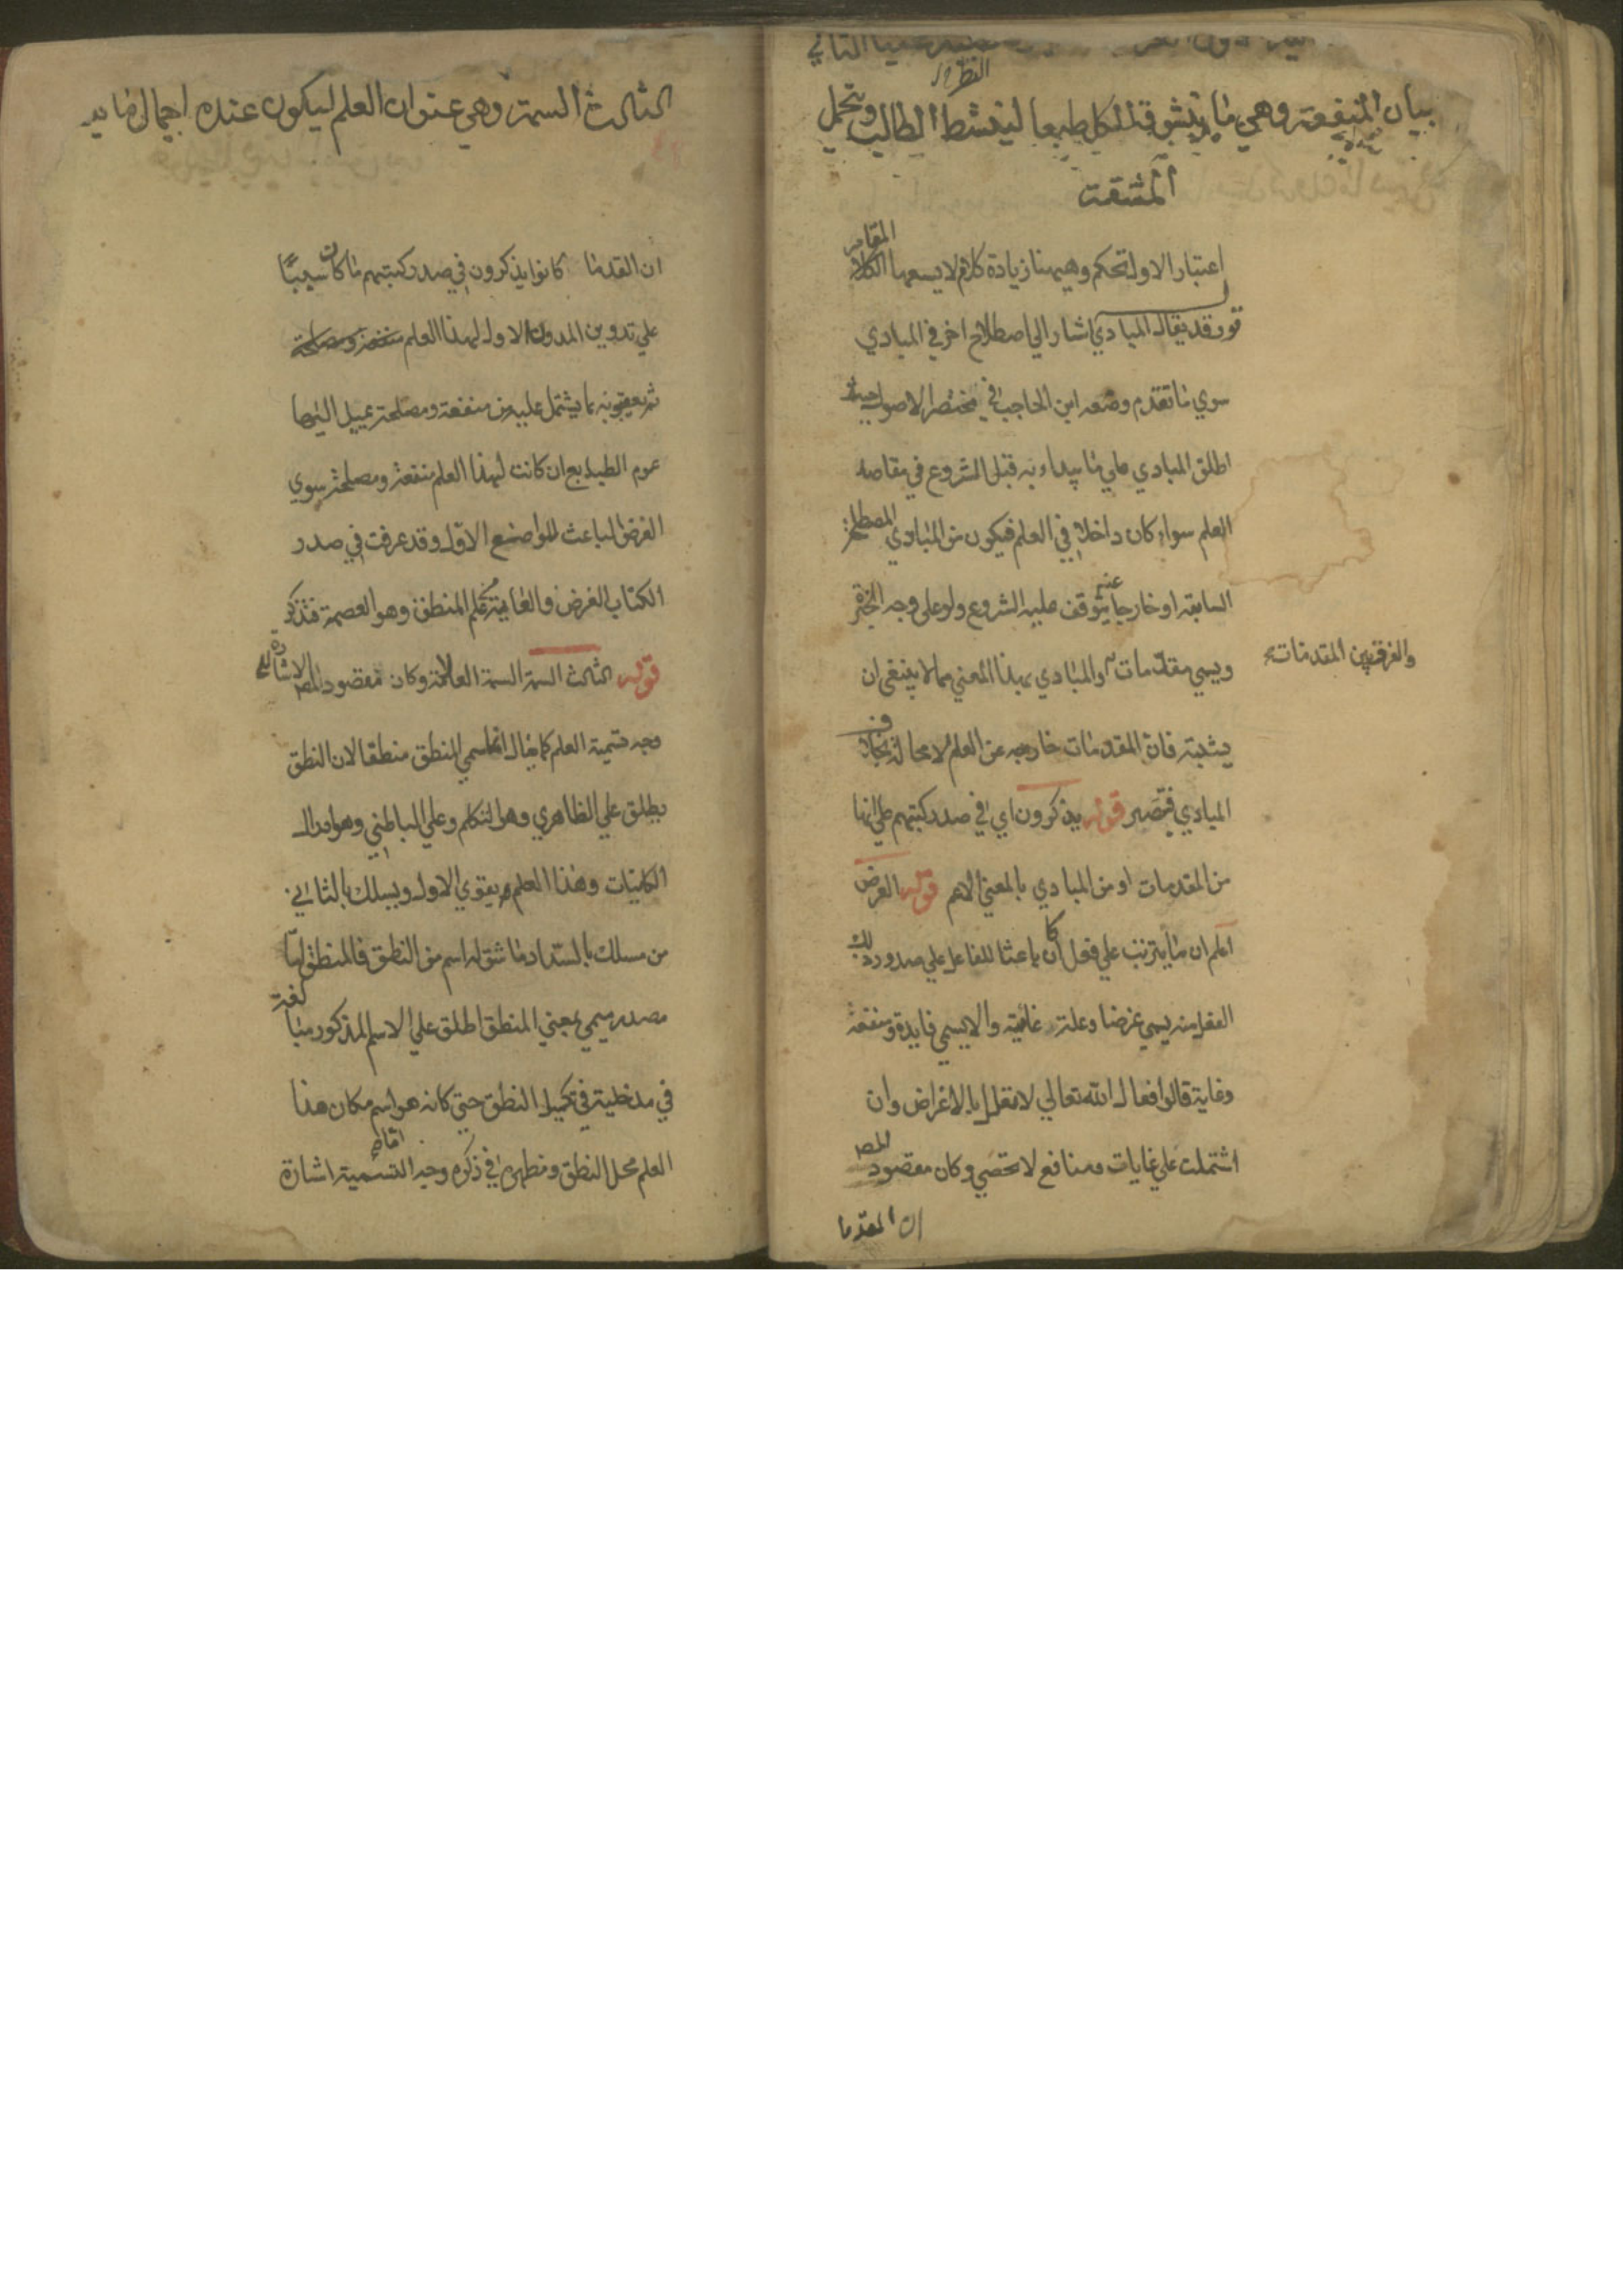 بيان المنفعة وهي ما يتشوقه الكل طبعا لينشط الطالب ويتحمل
المشقت
اعتبار الاول تحكم وههنا زيادة كلام لا يسعها المقام
قوله قد يقال المبادي اشار الي اصطلاح اخر في المبادي
سوي ما تقدم وضعه ابن الحاجب في مختصر الاصول حيث
اطلق المبادي علي ما يبداء به قبل الشروع في مقاصد
العلم سواء كان داخلا في العلم فيكون من المبادي المصطلحة
السابقه او خارجا عنه يتوقف عليه الشروع ولو علي وجه الخبرة
ويسمي مقدمات والمبادي بهذا المعني مما لا ينبغي ان
والفرق بين المقدمات
يشتبه فان المقدمات خارجه عن العلم لا محالة بخلاف
المبادي فتبصر قوله يذكرون اي في صدر كتبهم علي انها
من المقدمات او من المبادي بالمعني الاعم قوله الغرض
اعلم ان ما يترتب علي فعل ان كان باعثا للفاعل علي صدور ذلك
الفعل منه يسمي غرضا وعلة غائية والا يسمي فايدة ومنفعة
وغاية قالوا افعال الله تعالي لا تعلل بالاغراض وان
اشتملت علي غايات ومنافع لا تحصي وكان مقصود المصـ
ان القدما
الثالث السمة وهي عنوان العلم ليكون عنده اجمال ما
ان القدما كانوا يذكرون في صدر كتبهم ما كان سببًا
علي تدوين المدون الاول لهذا العلم منفعة ومصلحة
ثم يعقبونه بما يشتمل عليه من منفعة ومصلحة يميل اليها
عموم الطبايع ان كانت لهذا العلم منفعة ومصلحة سوي
الغرض الباعث للواضع الاول وقد عرفت في صدر
الكتاب الغرض والغاية من علم المنطق وهو العصمة فتذكر
قوله الثالث السمة السمة العلامة وكان مقصود المصـ الاشارة الي
وجه تسمية العلم كما يقال انما سمي المنطق منطقا لان النطق
يطلق علي الظاهري وهو التكلم وعلي الباطني وهو ادراك
الكليات وهذا العلم يقوي الاول ويسلك بالثاني
من مسلك بالسداد فاشتق له اسم من النطق فالمنطق امّا
مصدر ميمي بمعني المنطق اطلق علي الاسم المذكور مبالغة
في مدخلية في تكميل النطق حتي كانه هو اسم مكان هذا
العلم محل النطق ومظهره في ذكره وجه التسمية اشارة